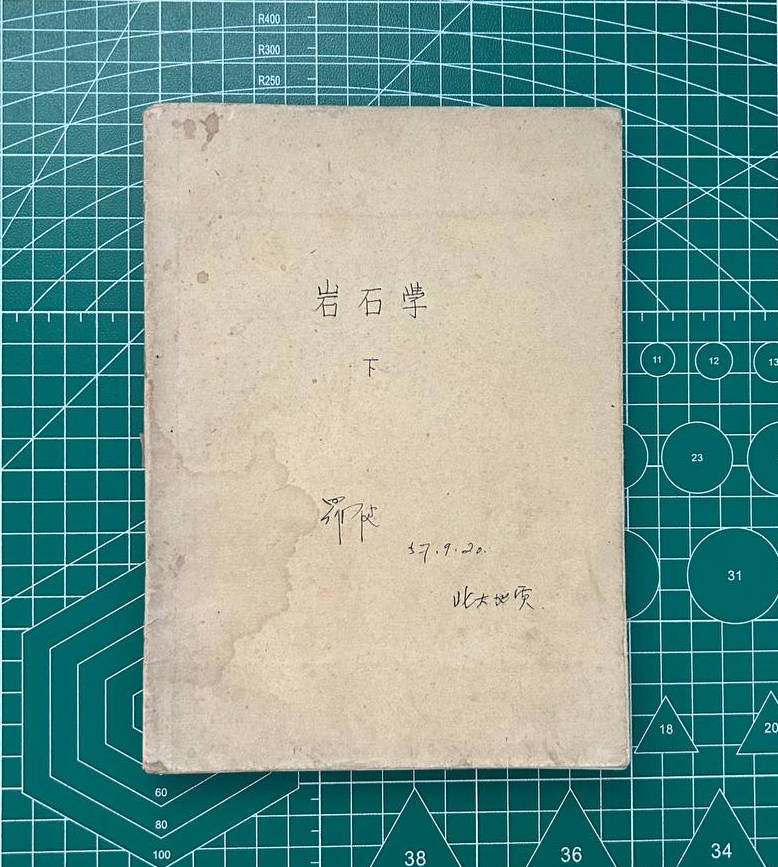 R400
R300
R250
岩石学
下
57.9.20.
北大地质.
11
12
13
23
31
18
20
60
80
100
38
36
34